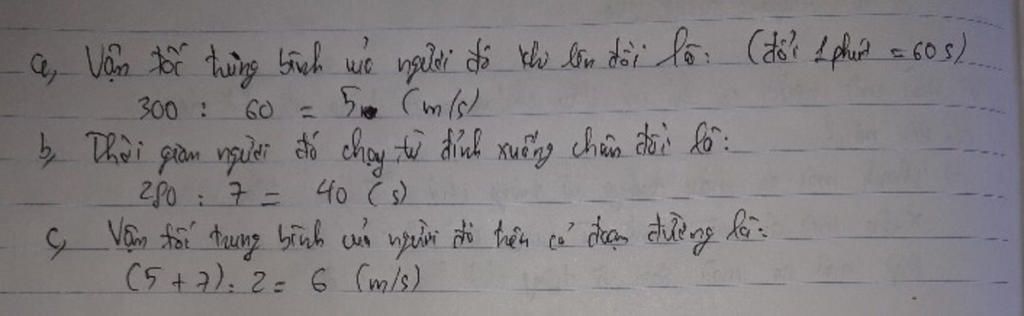 a, Vận tốc trung bình của người đó khi lên đồi là: (đổi 1 phút = 60s)
300 : 60 = 5 (m/s)
b, Thời gian người đó chạy từ đỉnh xuống chân đồi là:
280 : 7 = 40 (s)
c, Vận tốc trung bình của người đó trên cả đoạn đường là:
(5 + 7) : 2 = 6 (m/s)